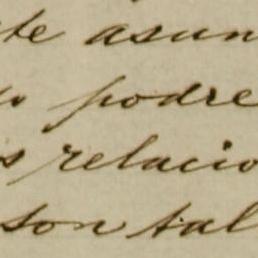 te asun
o podre
s relacio
son tal